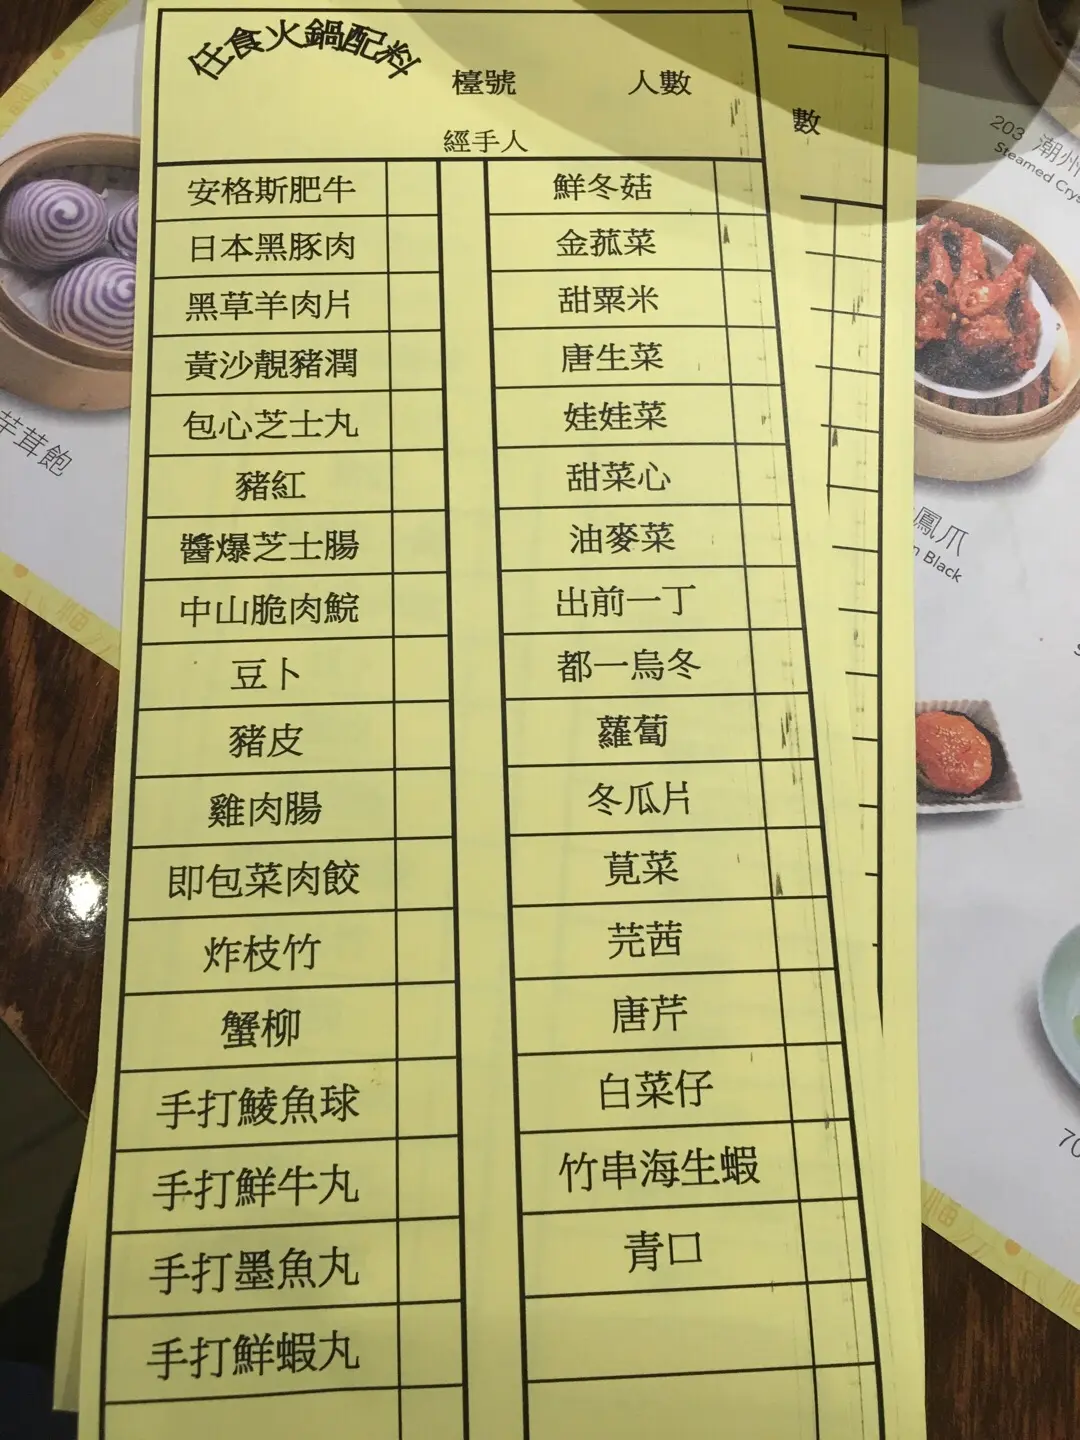 任食火鍋配料
檯號 人數
經手人
安格斯肥牛
日本黑豚肉
黑草羊肉片
黃沙靚豬潤
包心芝士丸
豬紅
醬爆芝士腸
中山脆肉鯇
豆卜
豬皮
雞肉腸
即包菜肉餃
炸枝竹
蟹柳
手打鯪魚球
手打鮮牛丸
手打墨魚丸
手打鮮蝦丸
鮮冬菇
金菰菜
甜粟米
唐生菜
娃娃菜
甜菜心
油麥菜
出前一丁
都一烏冬
蘿蔔
冬瓜片
莧菜
芫茜
唐芹
白菜仔
竹串海生蝦
青口
數
芋茸飽
203 潮州
Steamed Crys
鳳爪
n Black
70